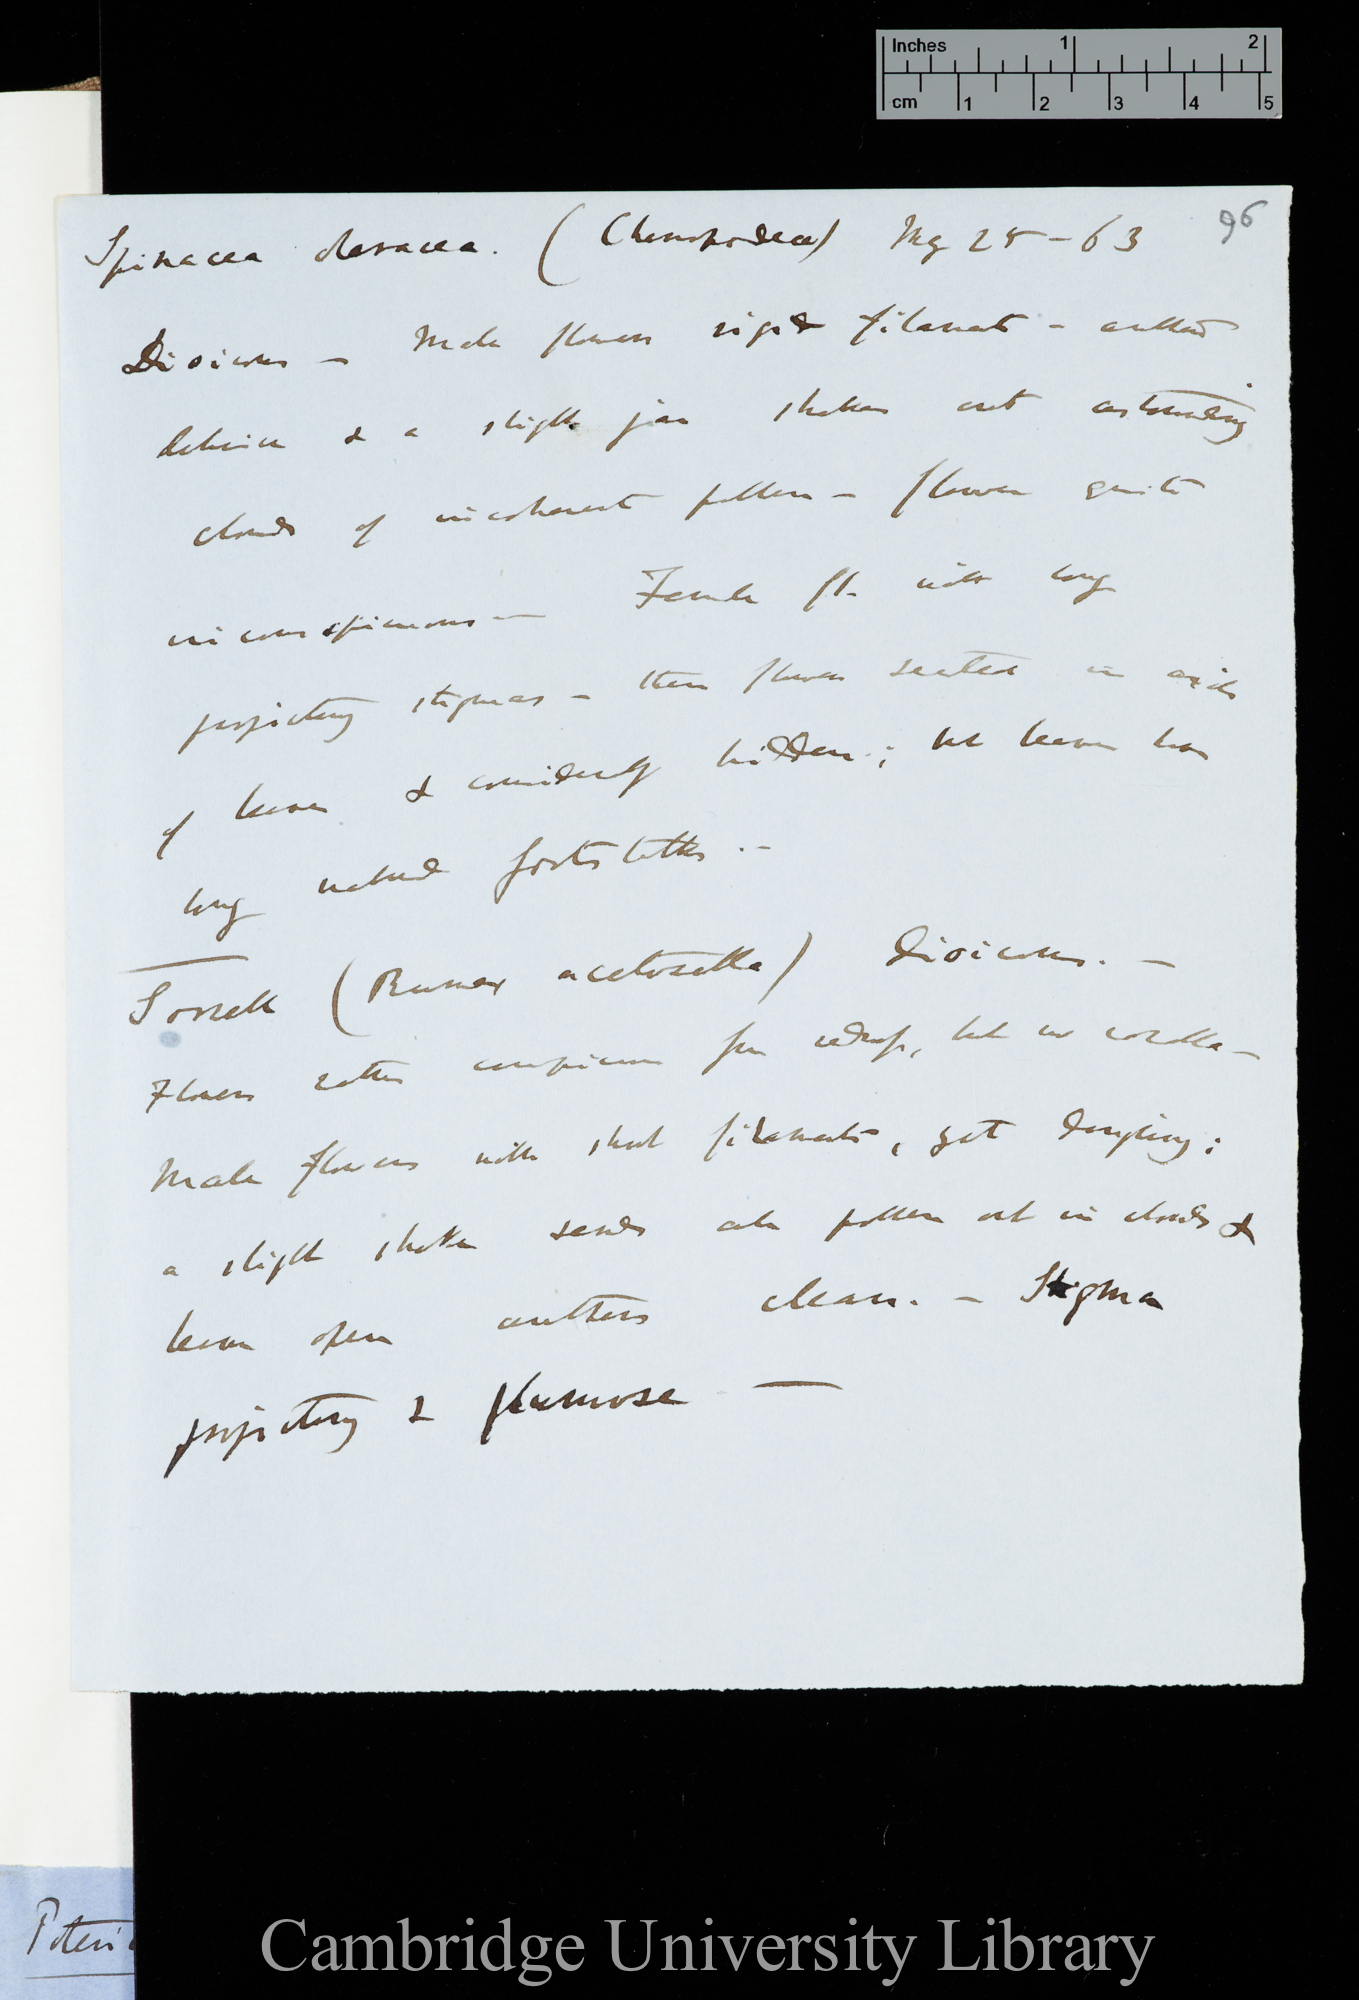 Inches 1 2
cm 1 2 3 4 5
96
Spinacea oleracea. (Chenopodeæ) May 25 - 63
Dioicous — Male flowers rigid filaments - anthers
dehisce & a slight jar shakes out astounding
clouds of incoherent pollen — flower quite
inconspicuous — Female fl. with long
projecting stigmas - these flowers seated in axils
of leaves & considerably hidden; but leaves have
long naked footstalks. —
Sorrell (Rumex acetosella) Dioicous. —
Flowers rather conspicuous from redness, but no corolla —
Male flowers with short filaments, yet dangling;
a slight shake sends all pollen out in clouds &
leaves open anthers clean. — Stigma
projecting & plumose —
Poteri
Cambridge University Library